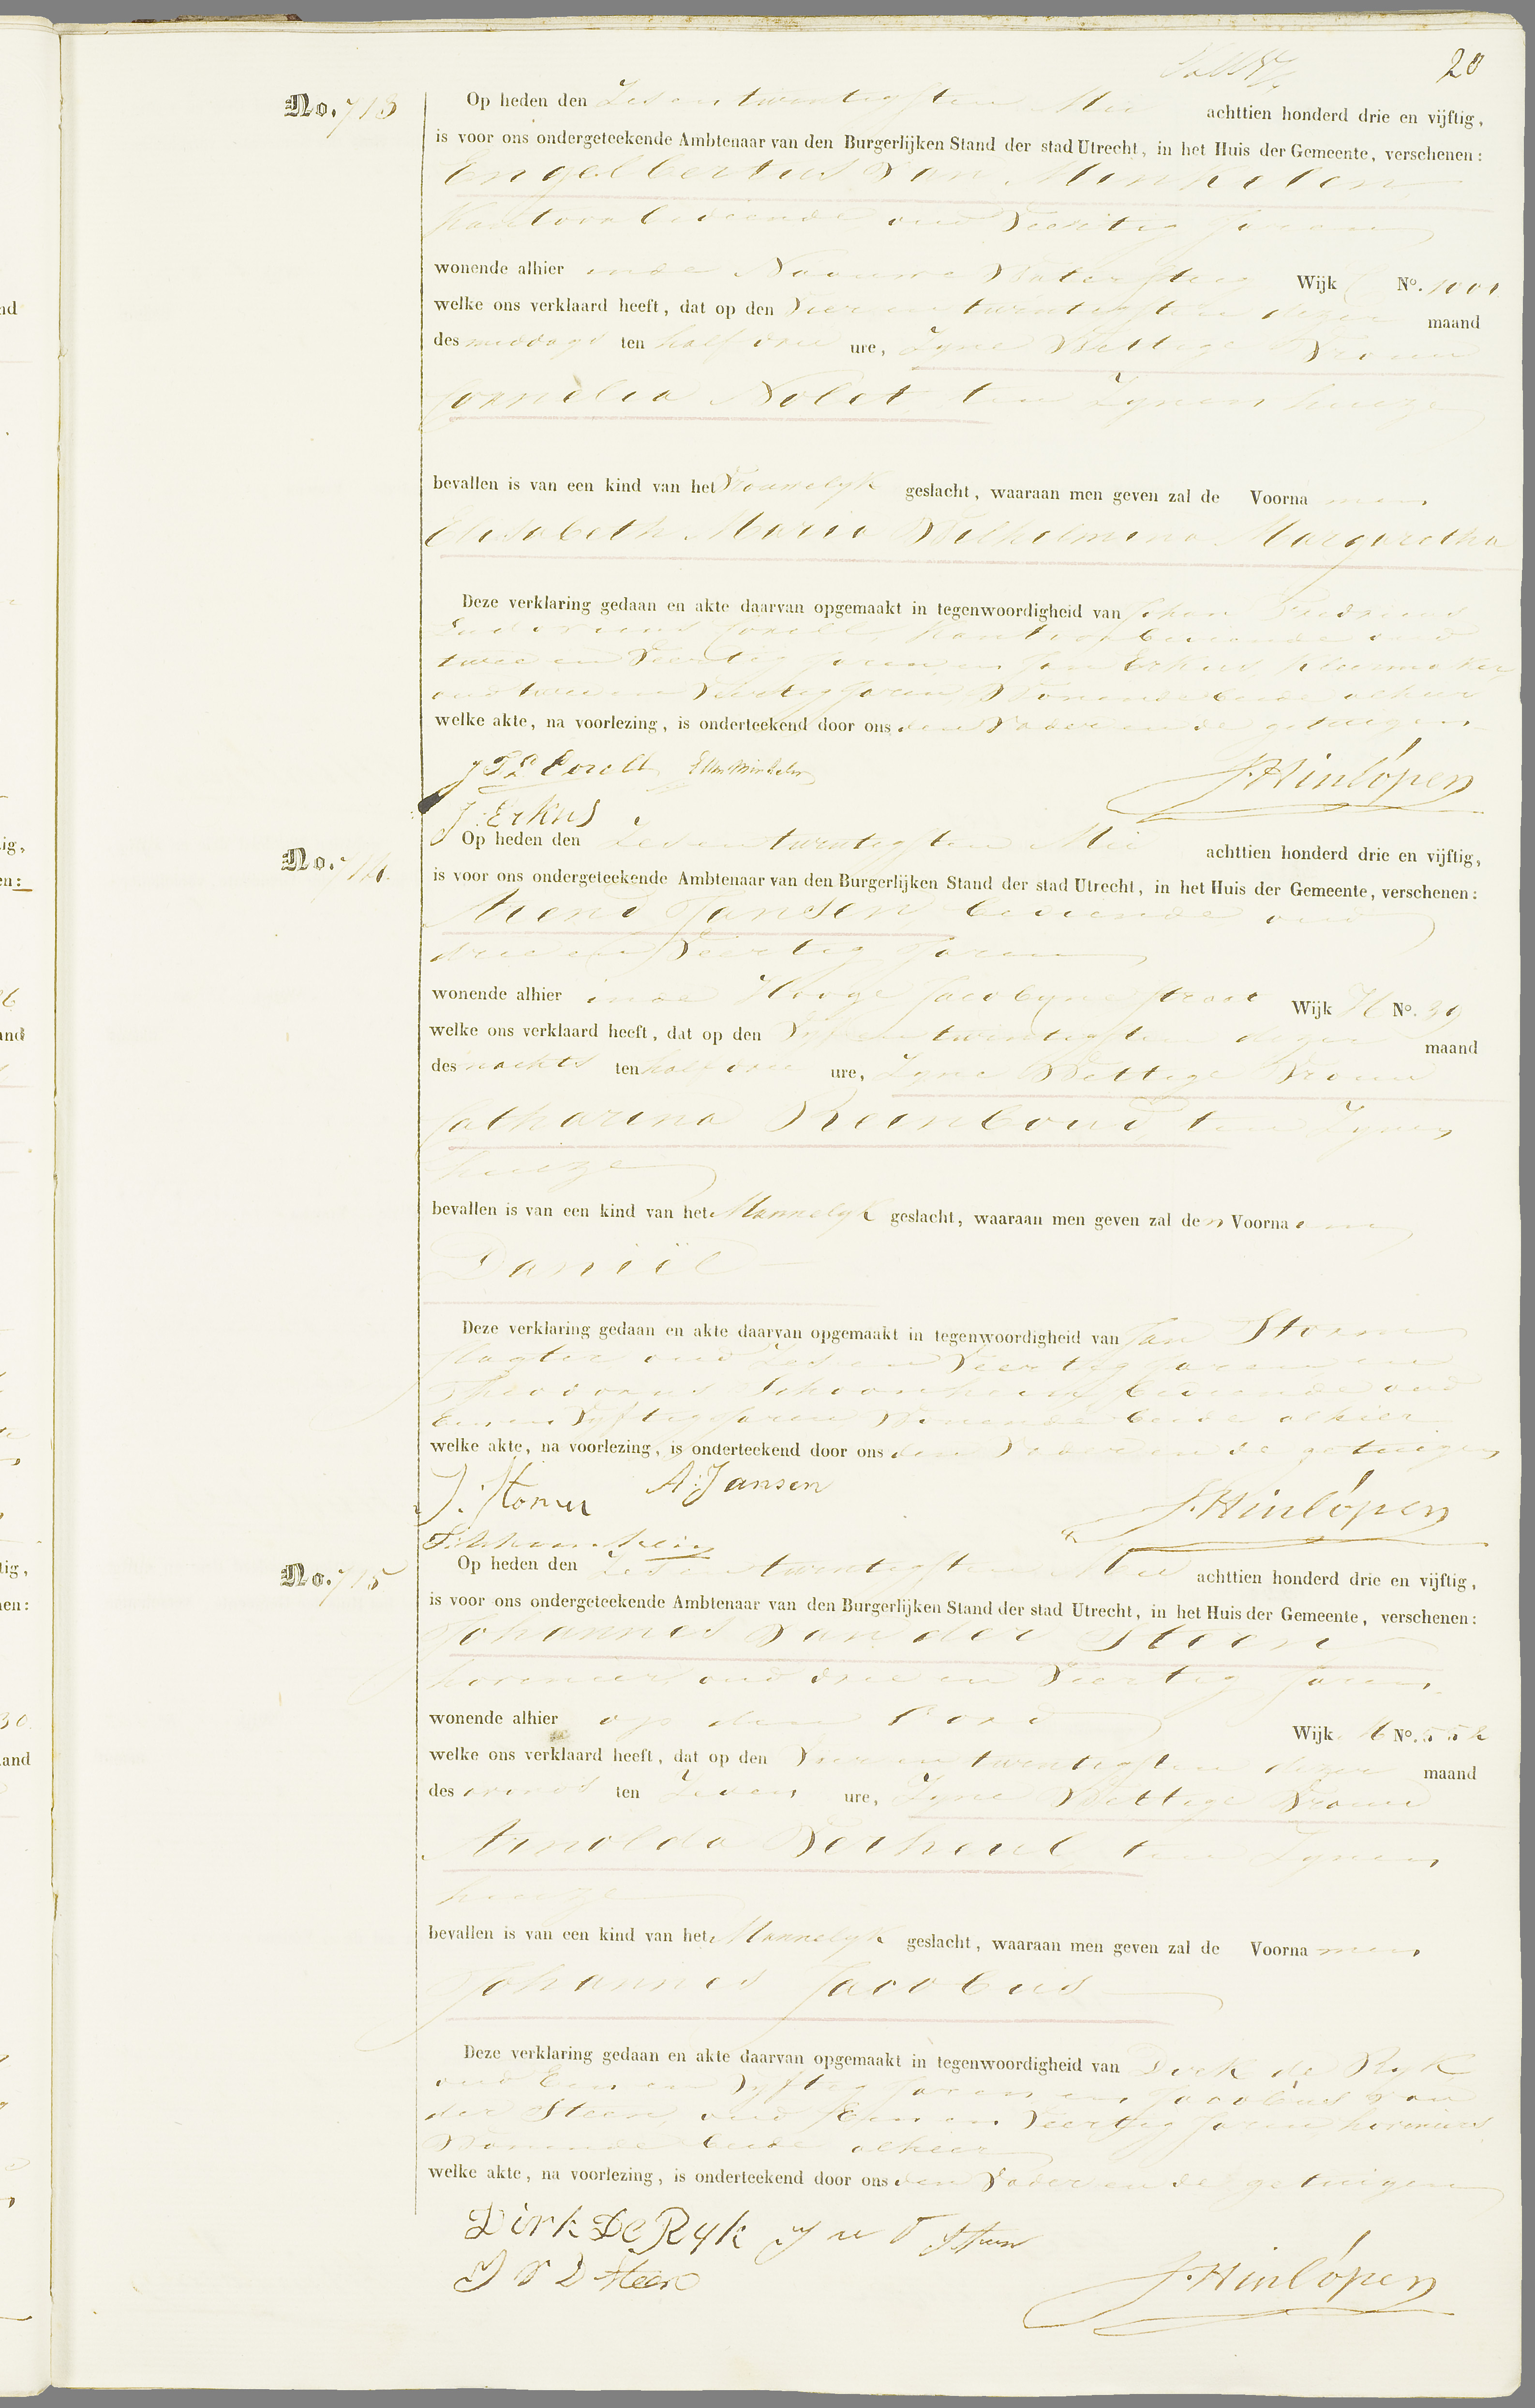 20
No. 713
Op heden den Zesentwintigsten Mei achttien honderd drie en vijftig,
is voor ons ondergeteekende Ambtenaar van den Burgerlijken Stand der stad Utrecht, in het Huis der Gemeente, verschenen:
Engelbertus van Minkelen
Kantoorbediende oud Veertig Jaren
wonende alhier in de Naauwe Watersteeg Wijk No. 1001
welke ons verklaard heeft, dat op den Vier en twintigsten dezer maand
des middags ten half drie ure, Zyne Wettige Vrouw
Cornelia Nobet ten Zynen huize
bevallen is van een kind van het Vrouwelyk geslacht, waaraan men geven zal de Voornamen
Elisabeth Maria Wilhelmina Margaretha
Deze verklaring gedaan en akte daarvan opgemaakt in tegenwoordigheid van Johan
kantoorbediende oud
twee en Veertig Jaren en Jan Erkus
oud twee en Veertig Jaren Wonende beide alhier
welke akte, na voorlezing, is onderteekend door ons den Vader en de getuigen
EVan Minkelen J. Hinlópen
J: Erkus
No. 714.
Op heden den Zesentwintigsten Mei achttien honderd drie en vijftig,
is voor ons ondergeteekende Ambtenaar van den Burgerlijken Stand der stad Utrecht, in het Huis der Gemeente, verschenen:
Arend Jansen, bediende oud
drie en Veertig Jaren
wonende alhier in de Hooge Jacobynestraat Wijk H No. 39
welke ons verklaard heeft, dat op den Vyfentwintigsten dezer maand
des nachts ten half drie ure, Zyne Wettige Vrouw
Catharina Reenboud, ten Zynen
huize
bevallen is van een kind van het Mannelyk geslacht, waaraan men geven zal den Voornaam
Daniël
Deze verklaring gedaan en akte daarvan opgemaakt in tegenwoordigheid van Jan Storm
slagter oud Zes en Veertig Jaren en
Theodorus Schoonhein, bediende oud
Een en Vyftig Jaren Wonende beide alhier
welke akte, na voorlezing, is onderteekend door ons den Vader en de getuigen
J: Storm A: Jansen J. Hinlópen
No. 715
Op heden den Zesentwintigsten Mei achttien honderd drie en vijftig,
is voor ons ondergeteekende Ambtenaar van den Burgerlijken Stand der stad Utrecht, in het Huis der Gemeente, verschenen:
Johannes van der Steen
hovenier, oud drie en Veertig Jaren
wonende alhier op den Wijk No. 552
welke ons verklaard heeft, dat op den Vier en twintigsten dezer maand
des avonds ten Zeven ure, Zyne Wettige Vrouw
Arnolda Verheul, ten Zynen
huize
bevallen is van een kind van het Mannelyk geslacht, waaraan men geven zal de Voornamen
Johannes Jacobus
Deze verklaring gedaan en akte daarvan opgemaakt in tegenwoordigheid van Dirk de Ryk
oud Een en Vyftig Jaren en Jacobus van
der Steen, oud Een en Veertig Jaren hoveniers
Wonende beide alhier
welke akte, na voorlezing, is onderteekend door ons den Vader en de getuigen
Dirk De Ryk J V D Steen
J V D Steen J. Hinlópen